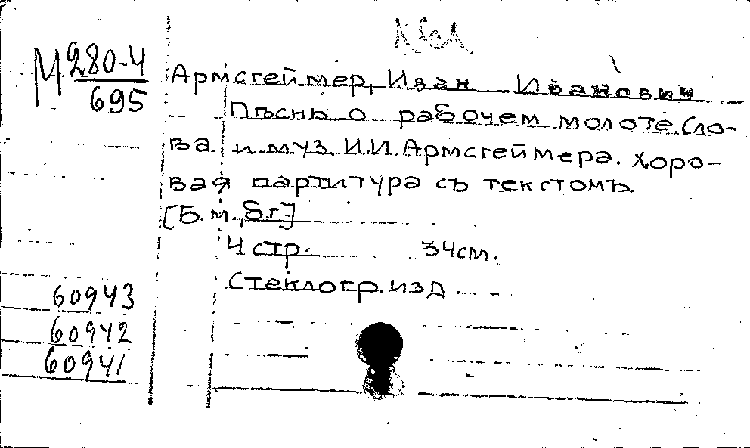 М 280-4
695
Армсгеймер, Иван Иванович
Пѣснь о рабочем молоте. Сло-
ва и муз. И.И. Армсгеймера. Хоро-
вая партитура съ текстомъ.
[Б.м., б.г.]
4 стр. 34 см.
Стеклогр. изд.
60943
60942
60941